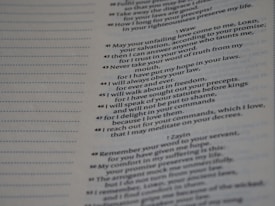 in your righteousness preserve my life.
ו Waw
41 May your unfailing love come to me, LORD,
your salvation, according to your promise;
42 then I can answer anyone who taunts me,
for I trust in your word.
43 Never take your word of truth from my
mouth,
for I have put my hope in your laws.
44 I will always obey your law,
for ever and ever.
45 I will walk about in freedom,
for I have sought out your precepts.
46 I will speak of your statutes before kings
and will not be put to shame,
47 for I delight in your commands
because I love them.
48 I reach out for your commands, which I love,
that I may meditate on your decrees.
ז Zayin
49 Remember your word to your servant,
for you have given me hope.
50 My comfort in my suffering is this:
Your promise preserves my life.
51 The arrogant mock me unmercifully,
but I do not turn from your law.
52 I remember, LORD, your ancient laws,